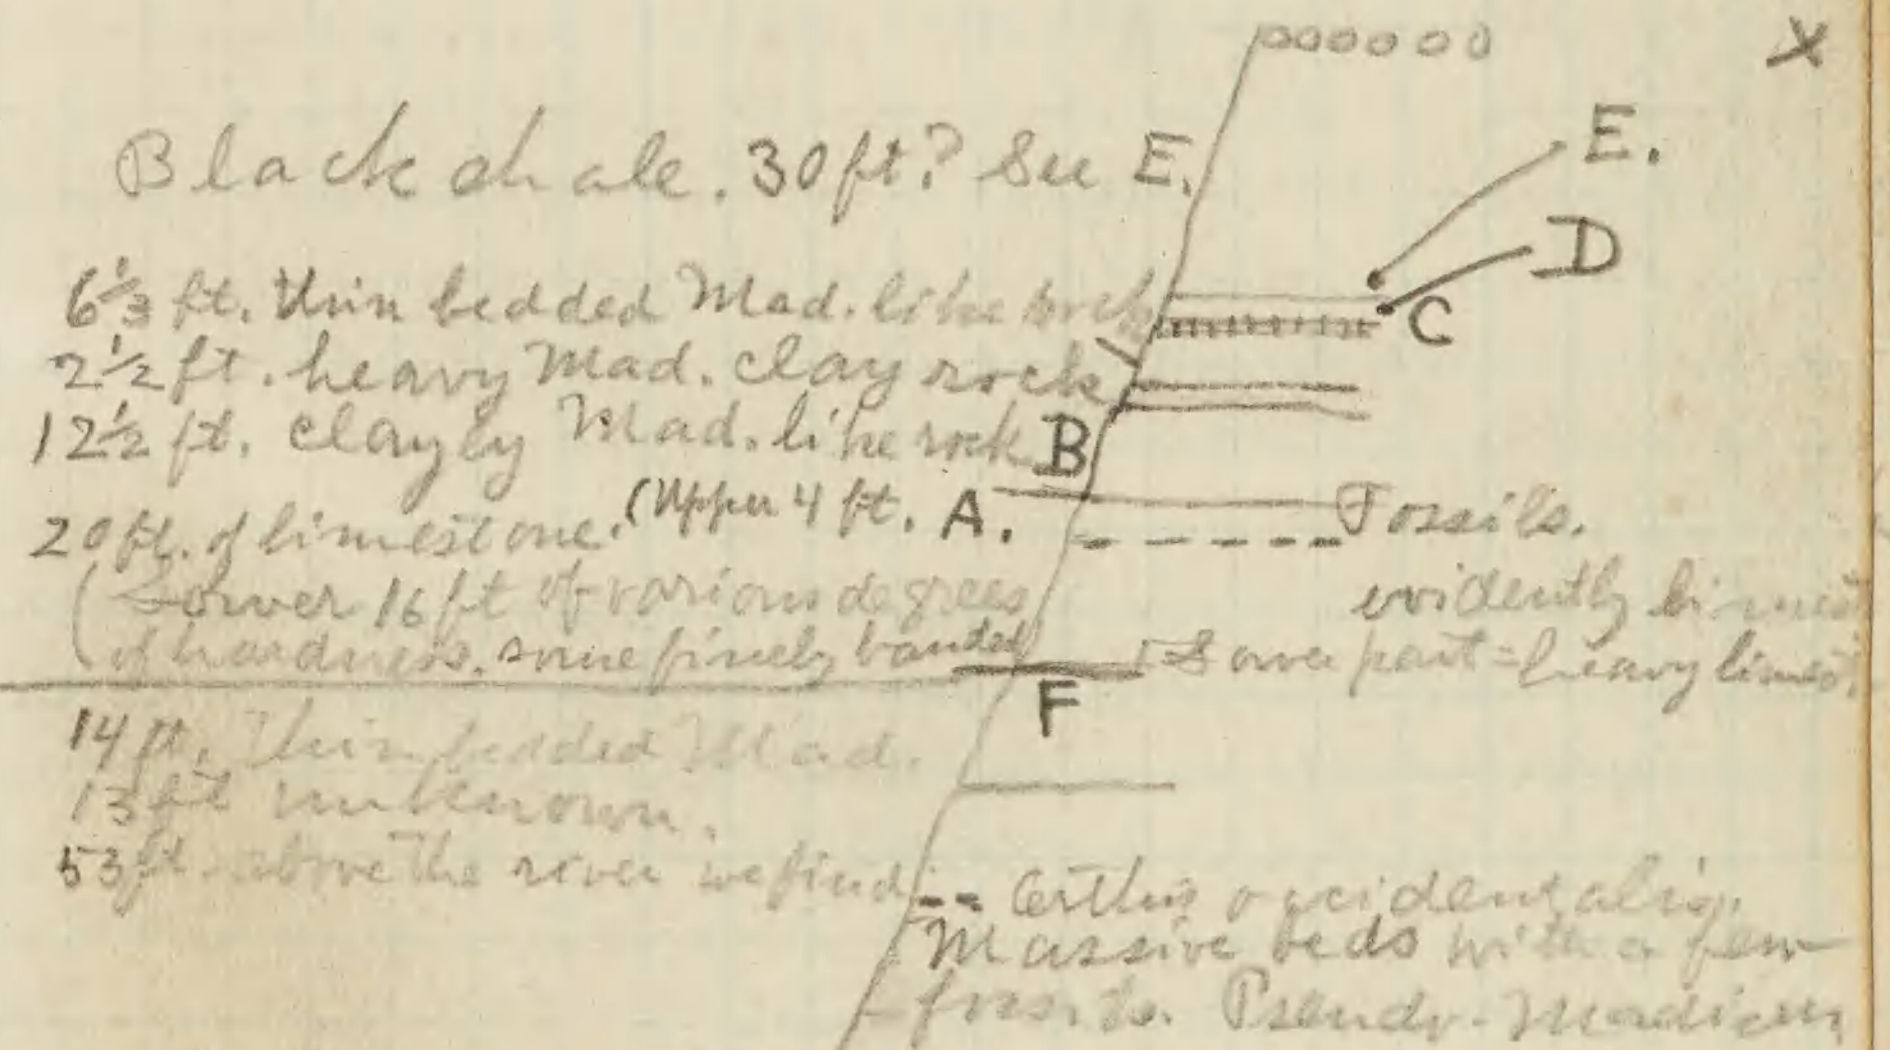 X
Black shale. 30 ft? See E.
E.
D
6 1/3 ft. thin bedded Mad. like rock
C
2 1/2 ft. heavy Mad. clay rock
12 1/2 ft. clayey Mad. like rock B
20 ft. of limestone. (Upper 4 ft. A.
Fossils.
(Lower 16 ft of various degrees
of hardness, some finely banded
evidently limest
Lower part = heavy limest.
F
14 ft. Thin bedded Mad.
13 ft unknown.
53 ft. above the river we find
Orthis occidentalis.
Massive beds with a few
fossils. Pseudo-Madison